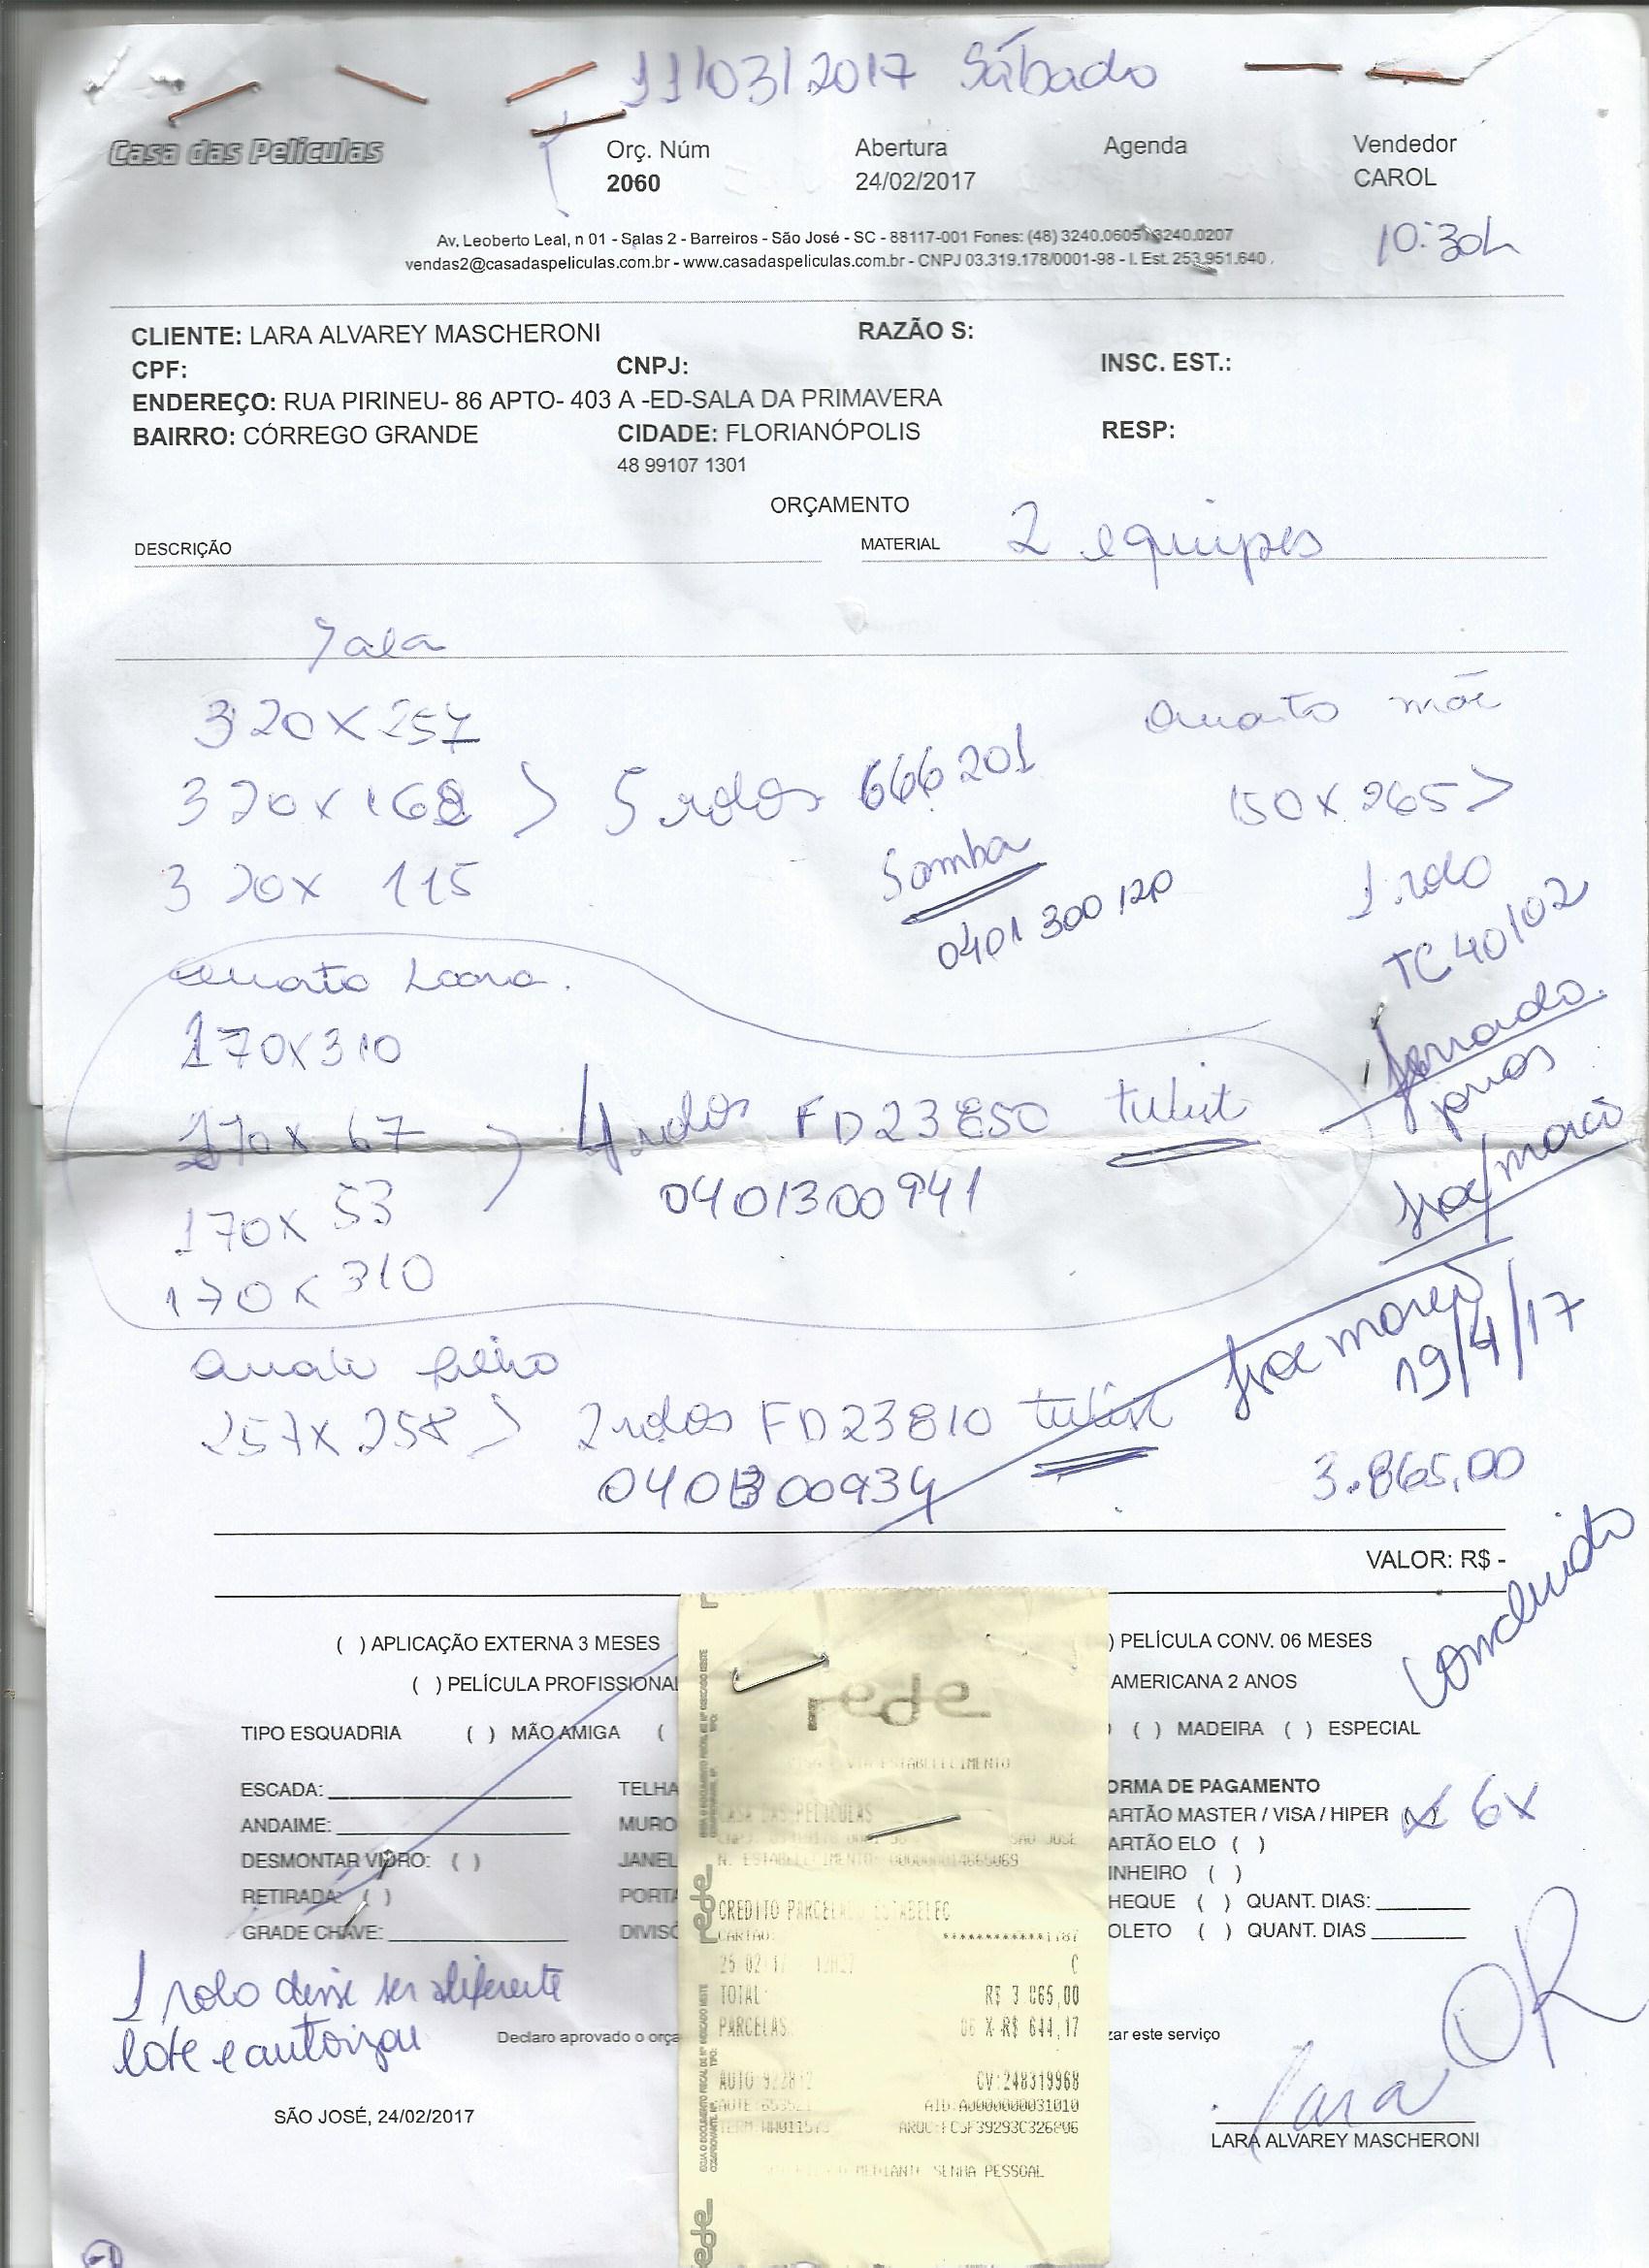 11/03/2017 Sábado
Casa das Películas
Orç. Núm Abertura Agenda Vendedor
2060 24/02/2017 CAROL
Av. Leoberto Leal, n 01 - Salas 2 - Barreiros - São José - SC - 88117-001 Fones: (48) 3240.0605 / 3240.0207
10:30h
vendas2@casadaspeliculas.com.br - www.casadaspeliculas.com.br - CNPJ 03.319.178/0001-98 - I. Est. 253.951.640
CLIENTE: LARA ALVAREY MASCHERONI RAZÃO S:
CPF: CNPJ: INSC. EST.:
ENDEREÇO: RUA PIRINEU- 86 APTO- 403 A -ED-SALA DA PRIMAVERA
BAIRRO: CÓRREGO GRANDE CIDADE: FLORIANÓPOLIS RESP:
48 99107 1301
ORÇAMENTO
DESCRIÇÃO MATERIAL 2 equipes
Sala
320 x 257
320 x 168 > 5 rolos 666201
Samba
320 x 115
0401300120
Quarto mãe
150 x 265 >
1 rolo
TC 40102
Quarto Loara.
170 x 310
170 x 67 > 4 rolos FD23850 tulist
0401300941
170 x 53
170 x 310
19/4/17
Quarto filho
257 x 258 > 2 rolos FD23810
0401300934
3.865,00
VALOR: R$ -
Concluido
( ) APLICAÇÃO EXTERNA 3 MESES ) PELÍCULA CONV. 06 MESES
( ) PELÍCULA PROFISSIONAL AMERICANA 2 ANOS
TIPO ESQUADRIA ( ) MÃO AMIGA ( ( ) MADEIRA ( ) ESPECIAL
ESCADA: TELHA ORMA DE PAGAMENTO
ANDAIME: MURO ARTÃO MASTER / VISA / HIPER (x) 6x
DESMONTAR VIDRO: ( ) JANEL ARTÃO ELO ( )
RETIRADA: ( ) PORTA INHEIRO ( )
GRADE CHAVE: DIVISÓ HEQUE ( ) QUANT. DIAS:
OLETO ( ) QUANT. DIAS
rede
VIA ESTABELECIMENTO
CASA DAS PELICULAS
SAO JOSE
N. ESTABELECIMENTO: 000000014665069
CREDITO PARCELADO ESTABELEC
CARTAO: ************1787
C
TOTAL: R$ 3 865,00
PARCELAS 06 X R$ 644,17
CV:248319968
AID:A0000000031010
ARQC:FC5F39293C326806
MEDIANTE SENHA PESSOAL
1 rolo disse ser diferente
lote e autorizou
Declaro aprovado o orça zar este serviço
OK
SÃO JOSÉ, 24/02/2017
Lara
LARA ALVAREY MASCHERONI